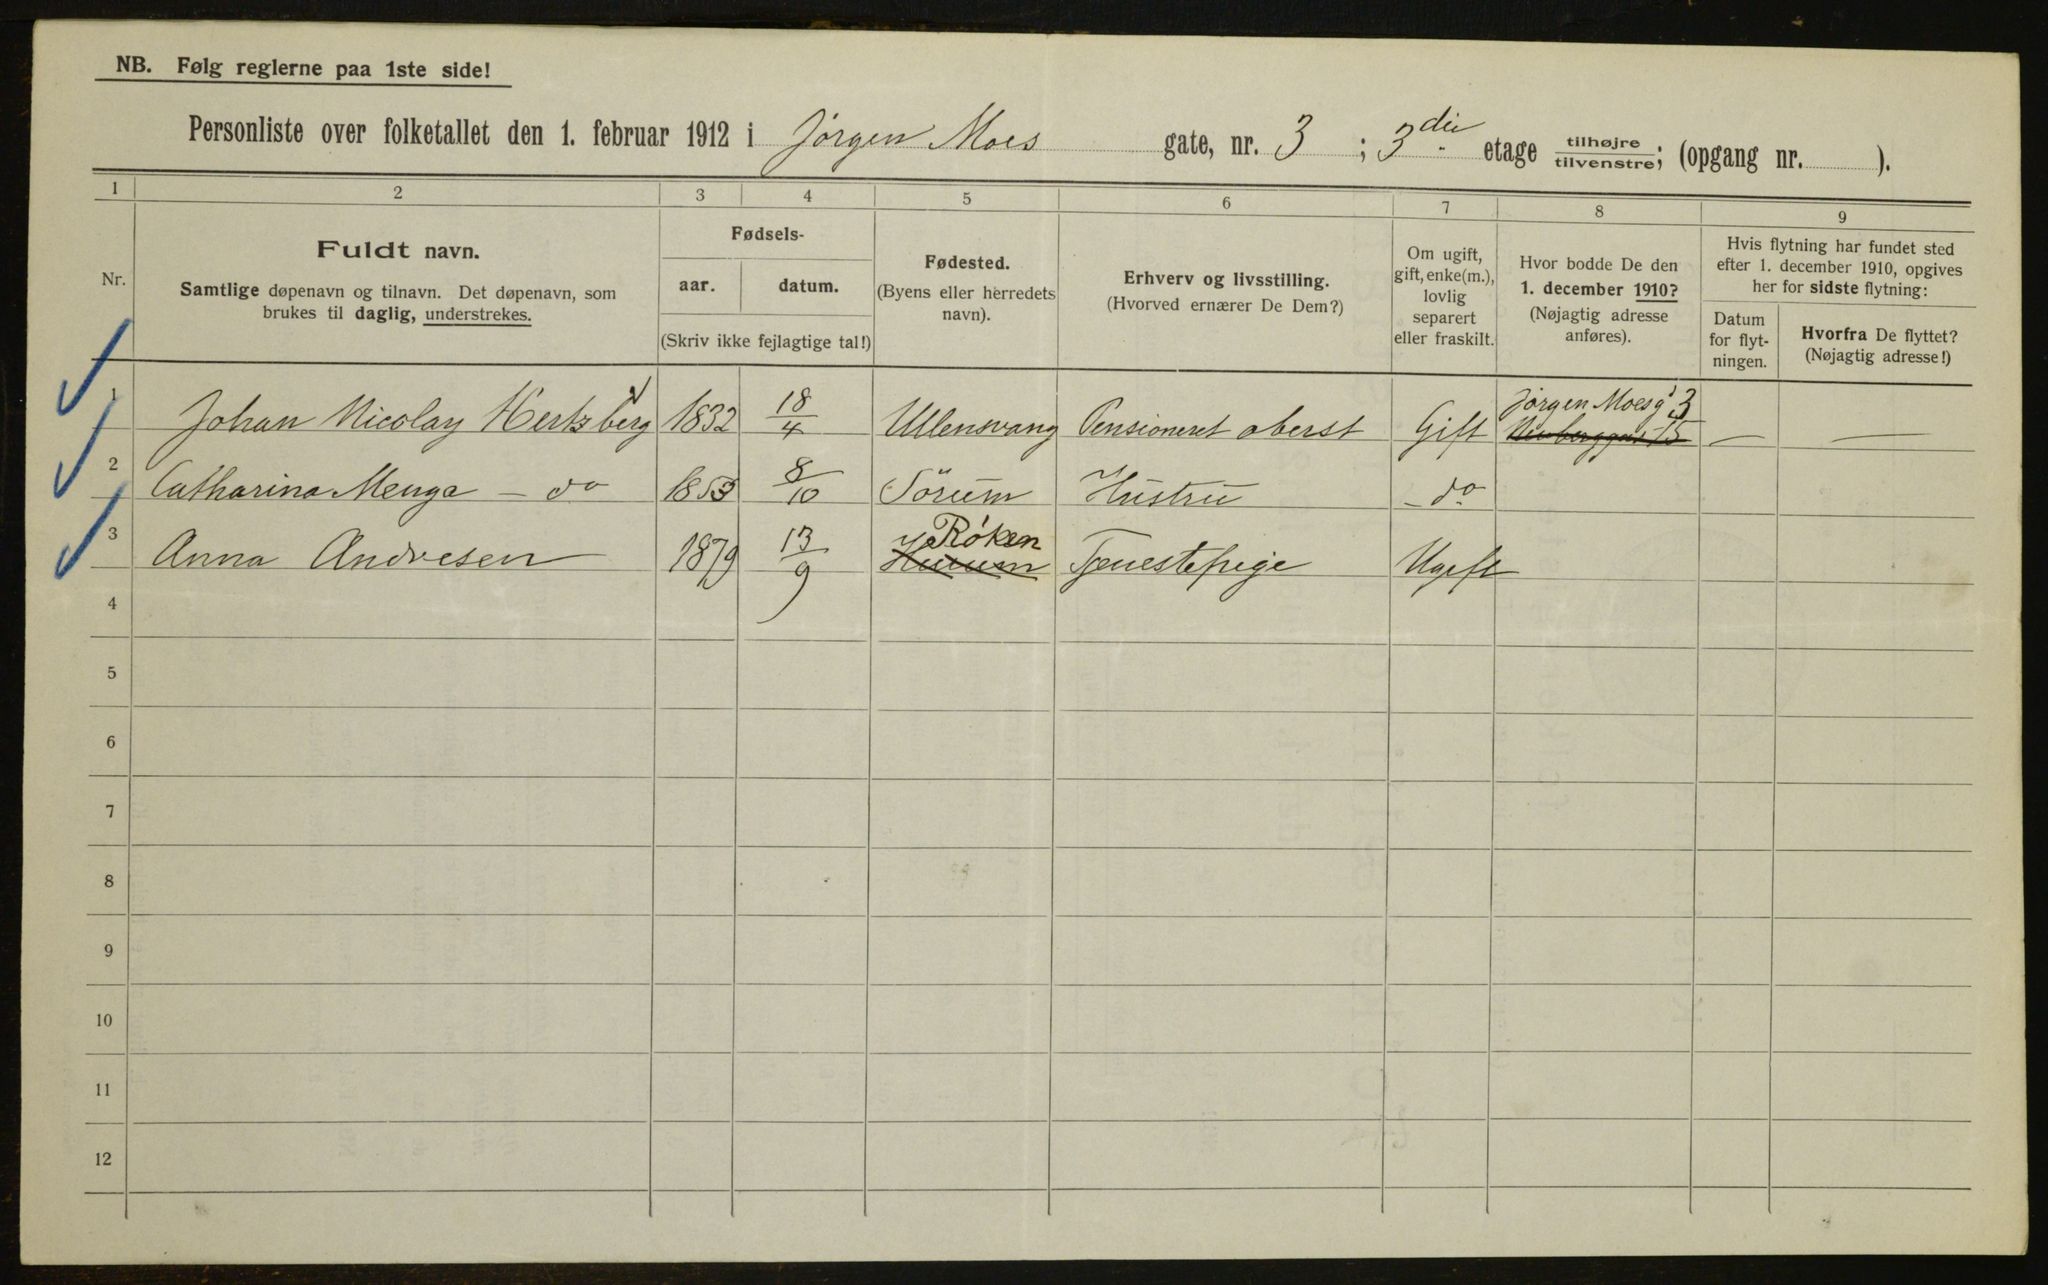 NB. Følg reglerne paa 1ste side!
Personliste over folketallet den 1. februar 1912 i Jörgen Moes gate, nr. 3 ; 3die etage tilhøjre tilvenstre; (opgang nr. ).
1 2 3 4 5 6 7 8 9
Nr.
Fuldt navn.
Samtlige døpenavn og tilnavn. Det døpenavn, som
brukes til daglig, understrekes.
Fødsels-
aar. datum.
(Skriv ikke fejlagtige tal!)
Fødested.
(Byens eller herredets
navn).
Erhverv og livsstilling.
(Hvorved ernærer De Dem?)
Om ugift,
gift, enke(m.),
lovlig
separert
eller fraskilt.
Hvor bodde De den
1. december 1910?
(Nøjagtig adresse
anføres).
Hvis flytning har fundet sted
efter 1. december 1910, opgives
her for sidste flytning:
Datum
for flyt-
ningen.
Hvorfra De flyttet?
(Nøjagtig adresse!)
1 Johan Nicolay Hertzberg 1832 18/4 Ullensvang Pensioneret oberst Gift Jörgen Moesg 3 — —
2 Catharina Menga – do 1853 8/10 Sörum Hustru – do
3 Anna Andresen 1879 13/9 Röken Tjenestepige Ugift
4
5
6
7
8
9
10
11
12